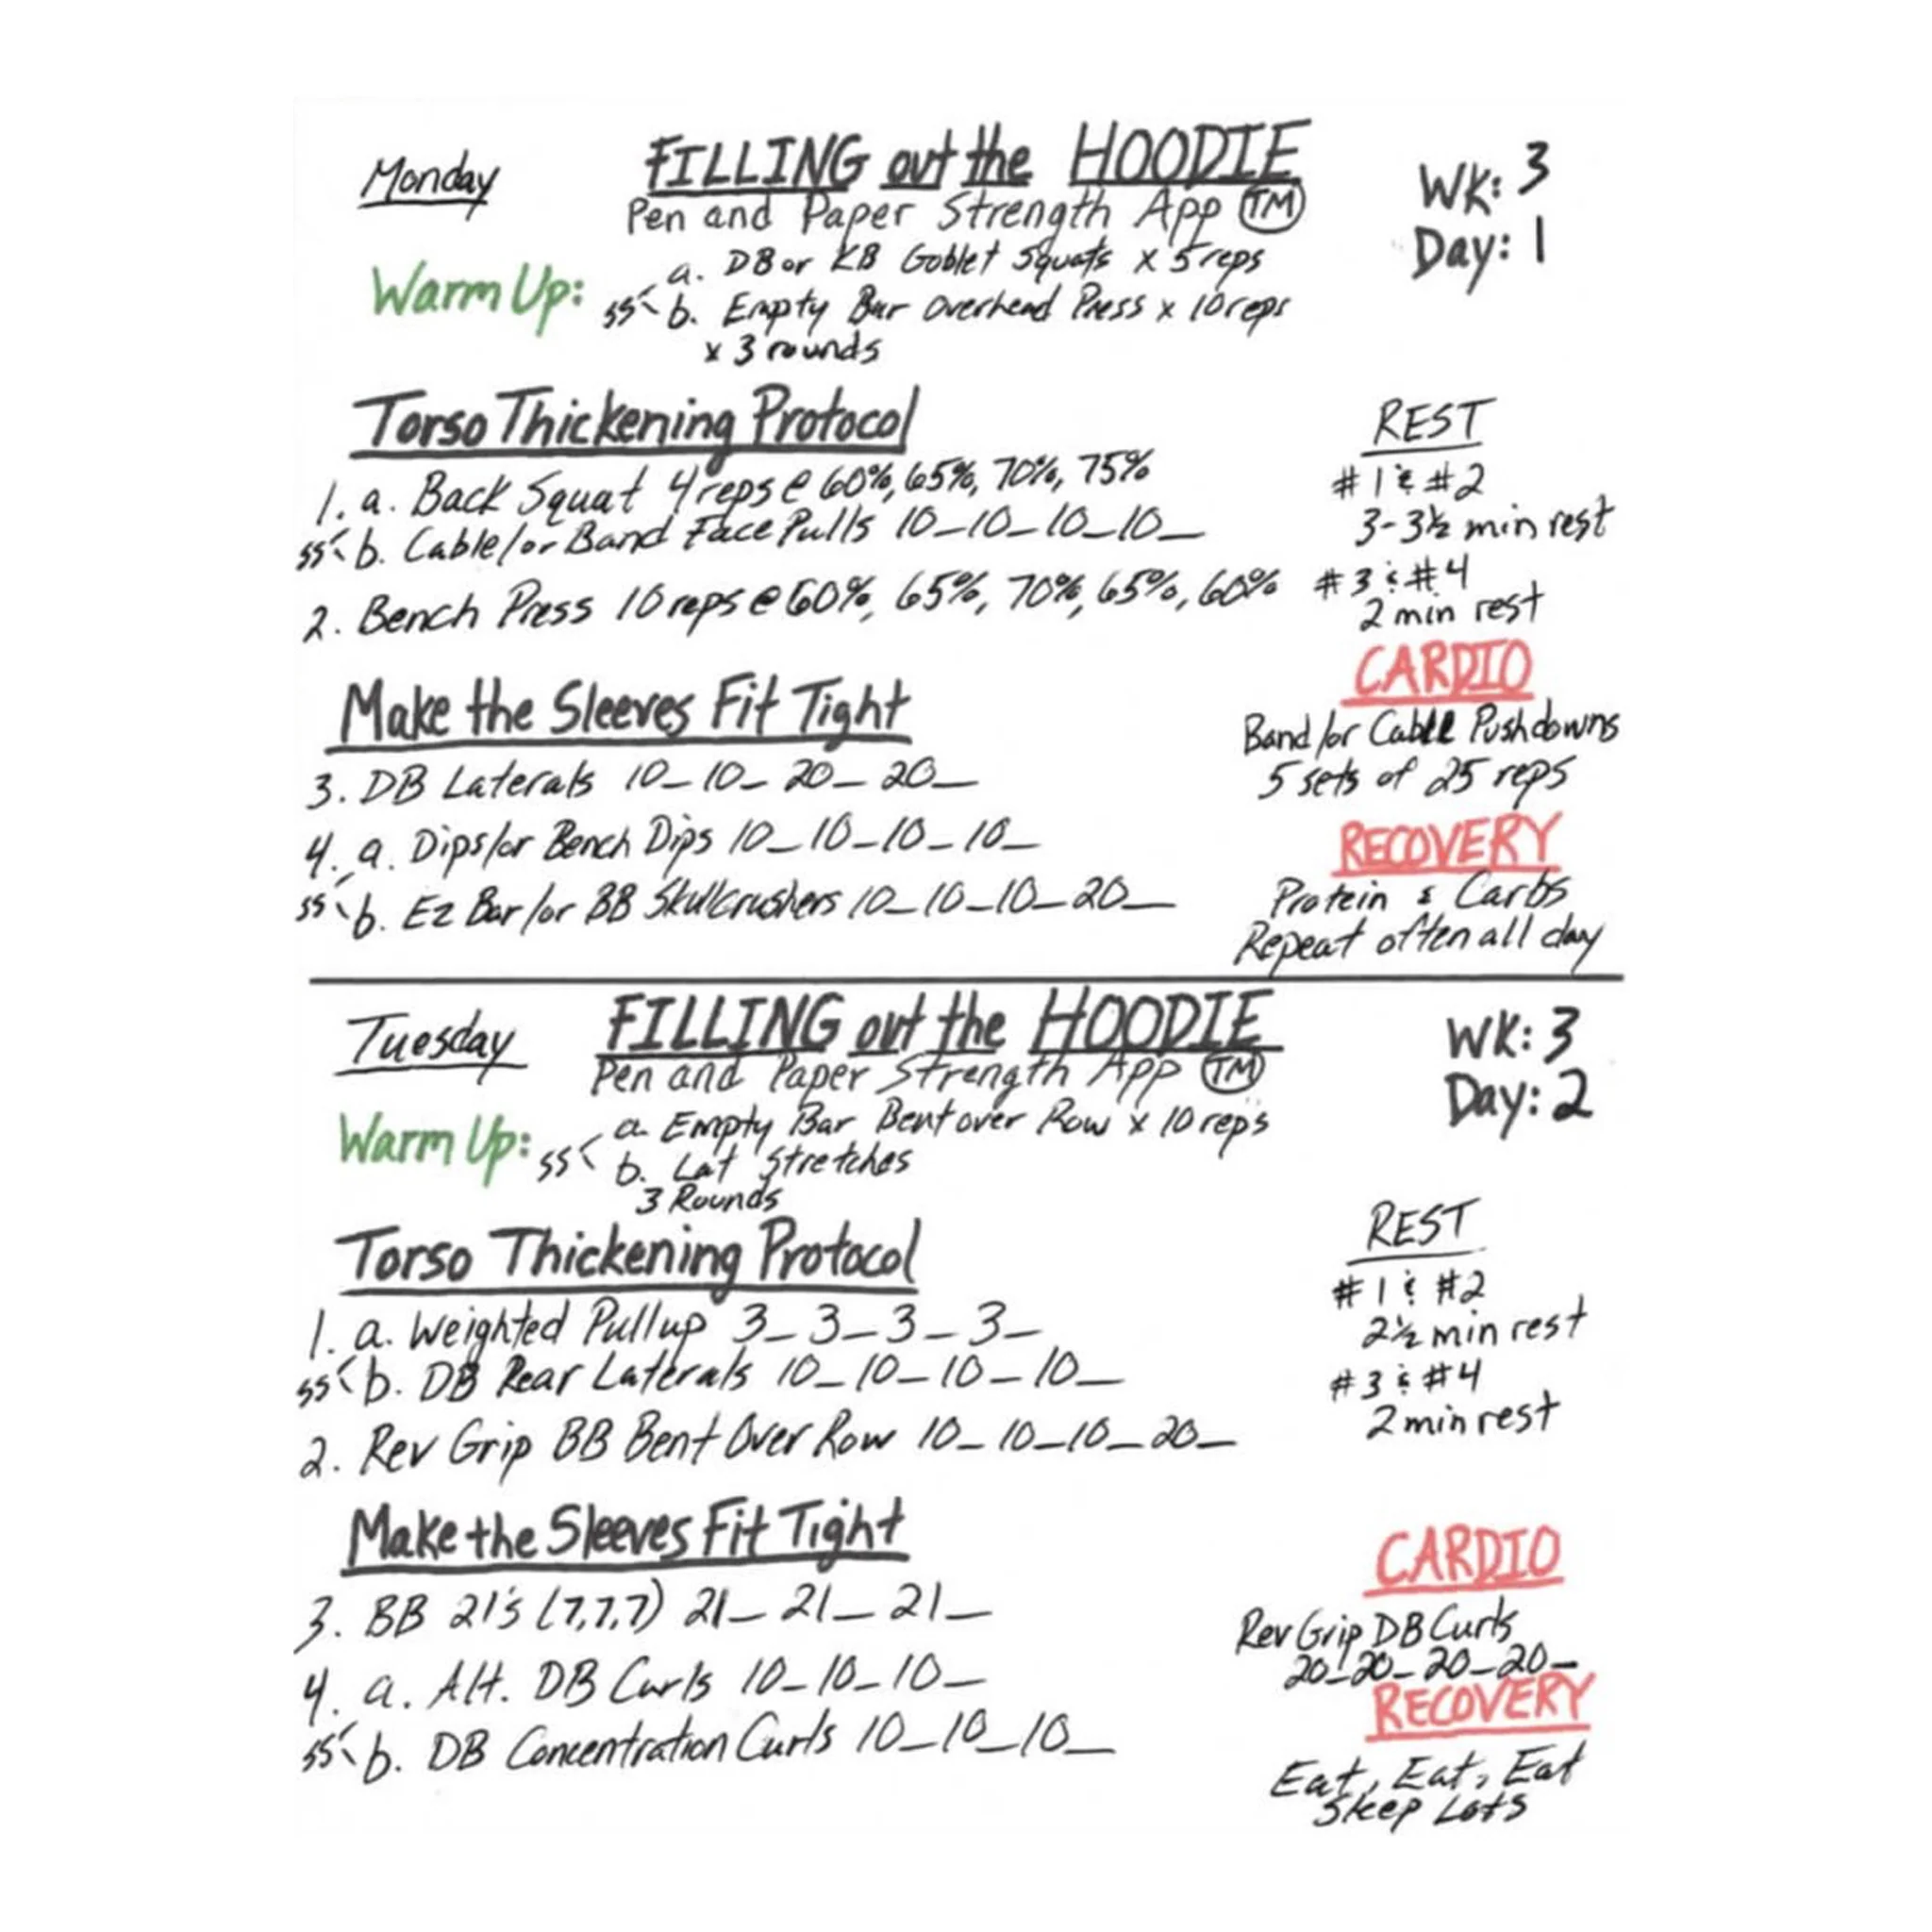 Monday
FILLING out the HOODIE
Pen and Paper Strength App TM
WK: 3
Day: 1
Warm Up:
a. DB or KB Goblet Squats x 5 reps
ss< b. Empty Bar Overhead Press x 10 reps
x 3 rounds
Torso Thickening Protocol
1. a. Back Squat 4 reps @ 60%, 65%, 70%, 75%
ss< b. Cable/or Band Face Pulls 10_10_10_10_
2. Bench Press 10 reps @ 60%, 65%, 70%, 65%, 60%
REST
#1 & #2
3-3½ min rest
#3 & #4
2 min rest
Make the Sleeves Fit Tight
3. DB Laterals 10_10_20_20_
4. a. Dips/or Bench Dips 10_10_10_10_
ss< b. Ez Bar/or BB Skullcrushers 10_10_10_20_
CARDIO
Band/or Cable Pushdowns
5 sets of 25 reps
RECOVERY
Protein & Carbs
Repeat often all day
Tuesday
FILLING out the HOODIE
Pen and Paper Strength App TM
WK: 3
Day: 2
Warm Up:
a. Empty Bar Bent over Row x 10 reps
ss< b. Lat Stretches
3 Rounds
Torso Thickening Protocol
1. a. Weighted Pullup 3_3_3_3_
ss< b. DB Rear Laterals 10_10_10_10_
2. Rev Grip BB Bent Over Row 10_10_10_20_
REST
#1 & #2
2½ min rest
#3 & #4
2 min rest
Make the Sleeves Fit Tight
3. BB 21's (7,7,7) 21_21_21_
4. a. Alt. DB Curls 10_10_10_
ss< b. DB Concentration Curls 10_10_10_
CARDIO
Rev Grip DB Curls
20_20_20_20_
RECOVERY
Eat, Eat, Eat
Sleep Lots